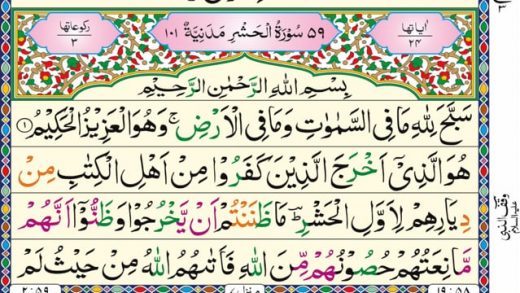 اٰیاتها ٢٤
٥٩ سُوْرَةُ الْحَشْرِ مَدَنِيَّةٌ ١٠١
رکوعاتها ٣
بِسْمِ اللهِ الرَّحْمٰنِ الرَّحِيْمِ
سَبَّحَ لِلّٰهِ مَا فِى السَّمٰوٰتِ وَمَا فِى الْاَرْضِ ۚ وَهُوَ الْعَزِيْزُ الْحَكِيْمُ ١
هُوَ الَّذِيْۤ اَخْرَجَ الَّذِيْنَ كَفَرُوْا مِنْ اَهْلِ الْكِتٰبِ مِنْ
دِيَارِهِمْ لِاَوَّلِ الْحَشْرِ ؕ مَا ظَنَنْتُمْ اَنْ يَّخْرُجُوْا وَظَنُّوْۤا اَنَّهُمْ
مَّانِعَتُهُمْ حُصُوْنُهُمْ مِّنَ اللهِ فَاَتٰىهُمُ اللهُ مِنْ حَيْثُ لَمْ
٢:٥٩
منزل
١٩:٥٨
وقف النبی